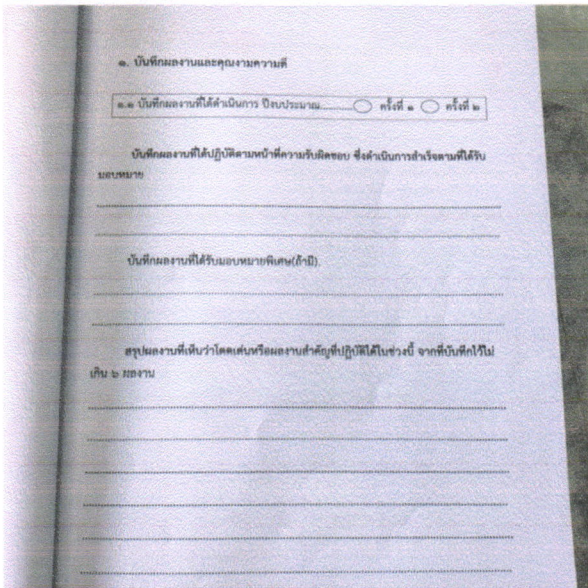 ๑. บันทึกผลงานและคุณงามความดี
๑.๑ บันทึกผลงานที่ได้ดำเนินการ ปีงบประมาณ............ ครั้งที่ ๑ ครั้งที่ ๒
บันทึกผลงานที่ได้ปฏิบัติตามหน้าที่ความรับผิดชอบ ซึ่งดำเนินการสำเร็จตามที่ได้รับ
มอบหมาย
บันทึกผลงานที่ได้รับมอบหมายพิเศษ(ถ้ามี).
สรุปผลงานที่เห็นว่าโดดเด่นหรือผลงานสำคัญที่ปฏิบัติได้ในช่วงนี้ จากที่บันทึกไว้ไม่
เกิน ๖ ผลงาน